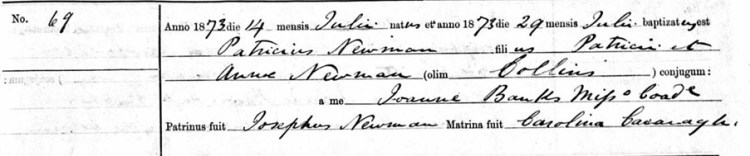 No. 69
Anno 1873 die 14 mensis Julii natus et anno 1873 die 29 mensis Julii baptizatus est
Patricius Newman filius Patricii et
Annae Newman (olim Collins) conjugum:
a me Joanne Banks Misso Coadr
Patrinus fuit Josephus Newman Matrina fuit Carolina Cavanagh.